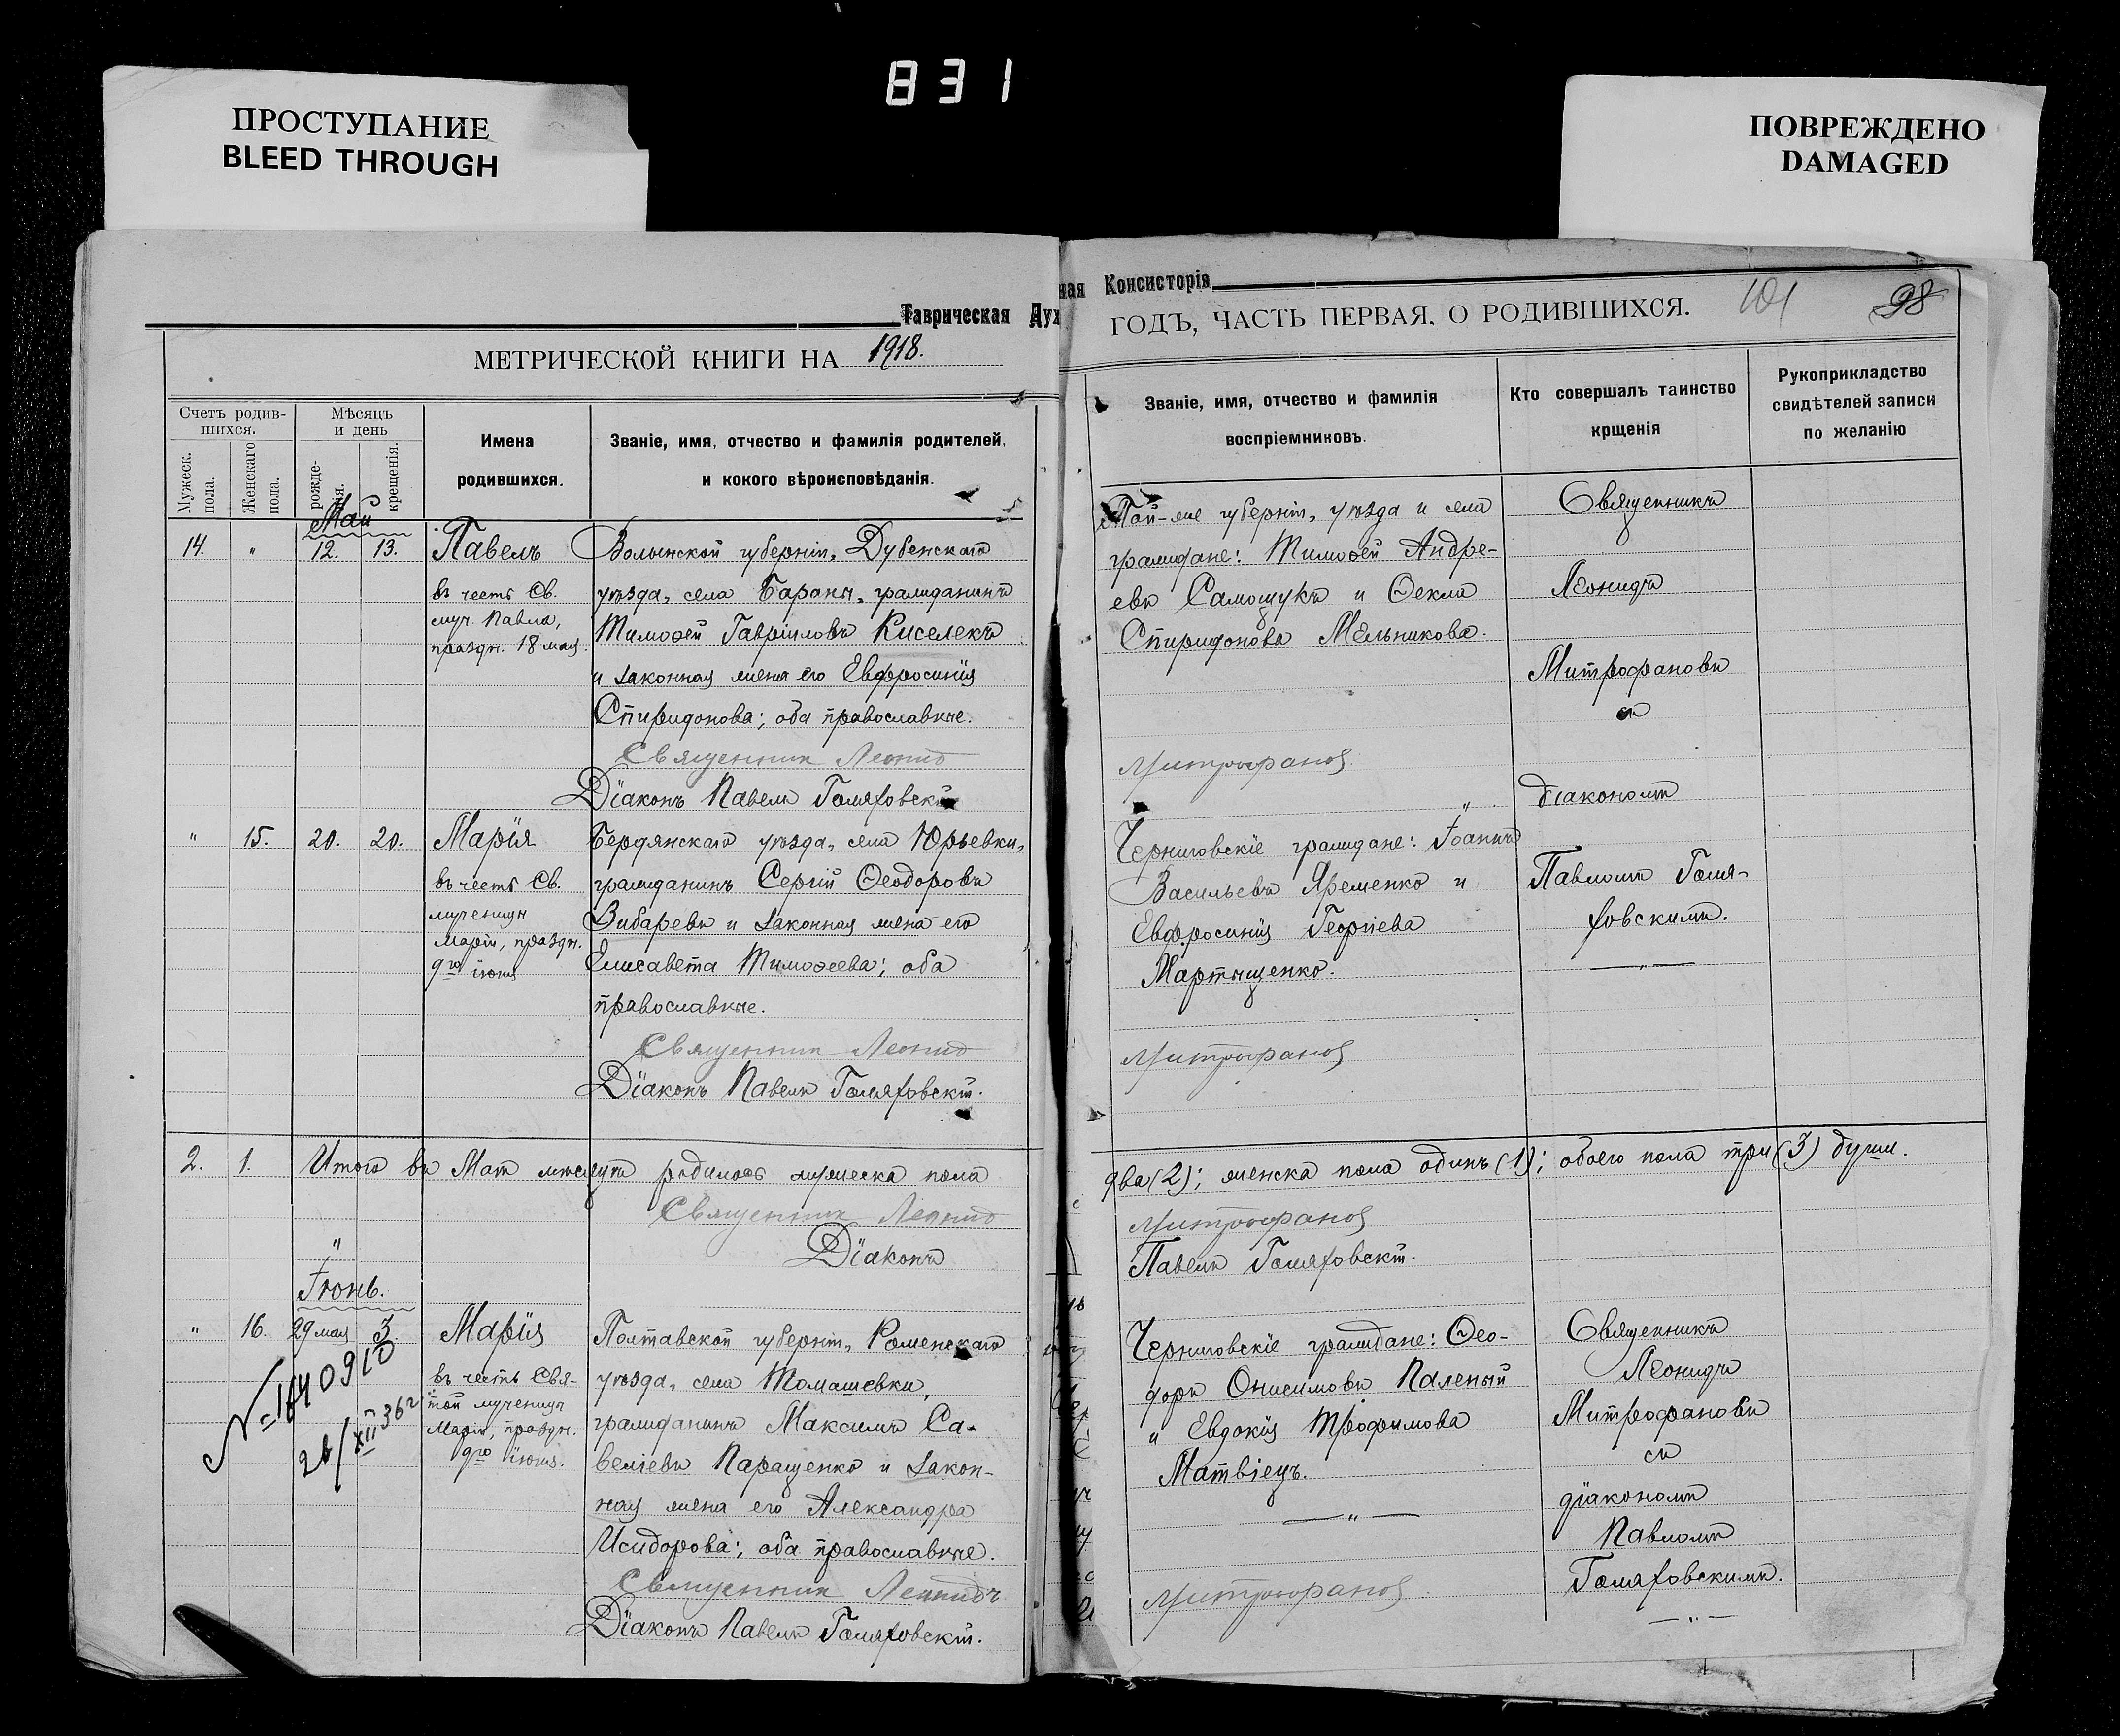 831
ПРОСТУПАНИЕ
BLEED THROUGH
ПОВРЕЖДЕНО
DAMAGED
Таврическая Дух
МЕТРИЧЕСКОЙ КНИГИ НА 1918.
Счетъ родив-
шихся.
Мужеск. пола.
Женскаго пола.
Мѣсяцъ
и день
рожде-
ния.
крещенія.
Имена
родившихся.
Званіе, имя, отчество и фамилія родителей,
и кокого вѣроисповѣданія.
Май
14. " 12. 13. Павелъ Волынской губерніи, Дубенскаго
въ честь Св. уѣзда, села Бараны, гражданинъ
муч. Павла, Тимоѳей Гавріиловъ Киселекъ
праздн. 18 мая.
и законная жена его Евфросинія
Спиридонова; оба православные.
Священникъ Леонид
Діаконъ Павелъ Голяховскій
" 15. 20. 20. Марія Бердянскаго уѣзда, села Юрьевки,
въ честь Св. гражданинъ Сергій Ѳеодоровъ
мученицы Зибаревъ и законная жена его
Маріи, праздн.
9го іюня Елисавета Тимоѳеева; оба
православные.
Священник Леонид
Діаконъ Павелъ Голяховскій.
2. 1. Итого въ Маѣ мѣсяцѣ родилось мужеска пола
Священник Леонид
" Діаконъ
Іюнь.
" 16. 29 мая 3. Марія Полтавской губерніи, Роменскаго
въ честь Свя- уѣзда, села Томашевки,
той мученицы гражданинъ Максимъ Са-
Маріи, праздн.
9го іюня. веліевъ Паращенко и закон-
ная жена его Александра
Исидорова; оба православные.
Священник Леонидъ
Діаконъ Павелъ Голяховскій.
XII 36г
ная Консисторія
ГОДЪ, ЧАСТЬ ПЕРВАЯ. О РОДИВШИХСЯ. 101 98
Званіе, имя, отчество и фамилія
воспріемниковъ.
Кто совершалъ таинство
крщенія
Рукоприкладство
свидѣтелей записи
по желанію
Той-же губерніи, уѣзда и села Священникъ
граждане: Тимоѳей Андре-
евъ Самощукъ и Ѳекла Леонидъ
Спиридонова Мельникова.
Митрофановъ
съ
Митрофанов
" діакономъ
Черниговскіе граждане: Іоаннъ
Васильевъ Яременко и Павломъ Голя-
Евфросинія Георгіева ховскимъ.
Мартыщенко.
Митрофанов
два (2); женска пола одинъ (1); обоего пола три (3) души.
Митрофанов
Павелъ Голяховскій.
Черниговскіе граждане: Ѳео- Священникъ
доръ Онисимовъ Паленый Леонидъ
и Евдокія Трофимова Митрофановъ
Матвіецъ. съ
" діакономъ
Павломъ
Митрофанов Голяховскимъ.
"